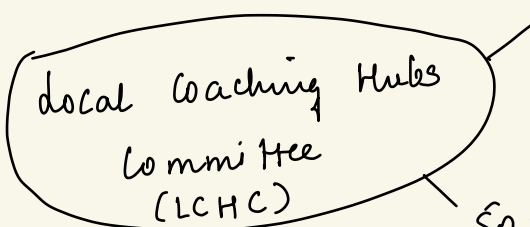 Local Coaching Hubs
Committee
(LCHC)